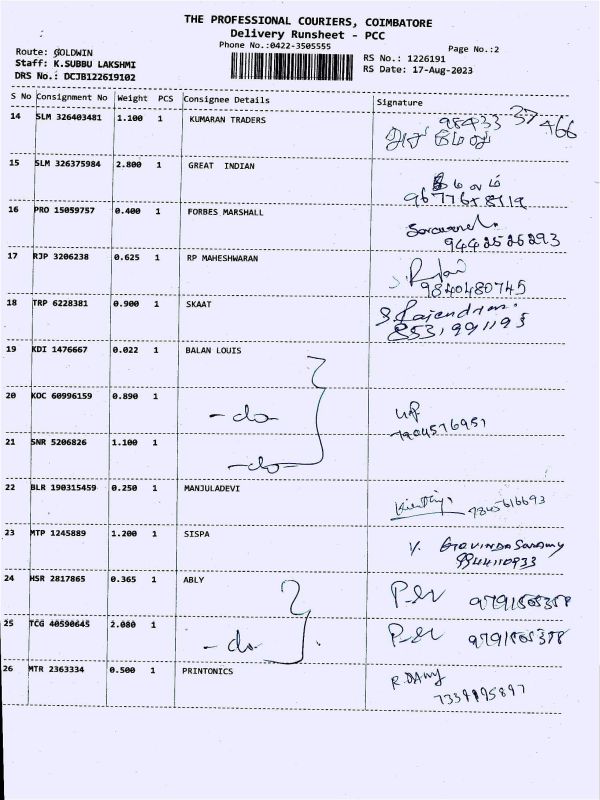 THE PROFESSIONAL COURIERS, COIMBATORE
Delivery Runsheet - PCC
Phone No.:0422-3505555
Page No.:2
Route: GOLDWIN
Staff: K.SUBBU LAKSHMI
DRS No.: DCJB122619102
RS No.: 1226191
RS Date: 17-Aug-2023
S No Consignment No Weight PCS Consignee Details Signature
14 SLM 326403481 1.100 1 KUMARAN TRADERS 98433 37466
15 SLM 326375984 2.800 1 GREAT INDIAN
16 PRO 15059757 0.400 1 FORBES MARSHALL Saravanel.
9442525293
17 RJP 3206238 0.625 1 RP MAHESHWARAN
9840480745
18 TRP 6228381 0.900 1 SKAAT S. Rajendran.
8531991193
19 KDI 1476667 0.022 1 BALAN LOUIS
20 KOC 60996159 0.890 1 -do-
7904576951
21 SNR 5206826 1.100 1 -do-
22 BLR 190315459 0.250 1 MANJULADEVI 7845616693
23 MTP 1245889 1.200 1 SISPA V. GOVINDASWAMY
9944110933
24 HSR 2817865 0.365 1 ABLY
25 TCG 40590645 2.080 1 -do-
26 MTR 2363334 0.500 1 PRINTONICS R.DAMY